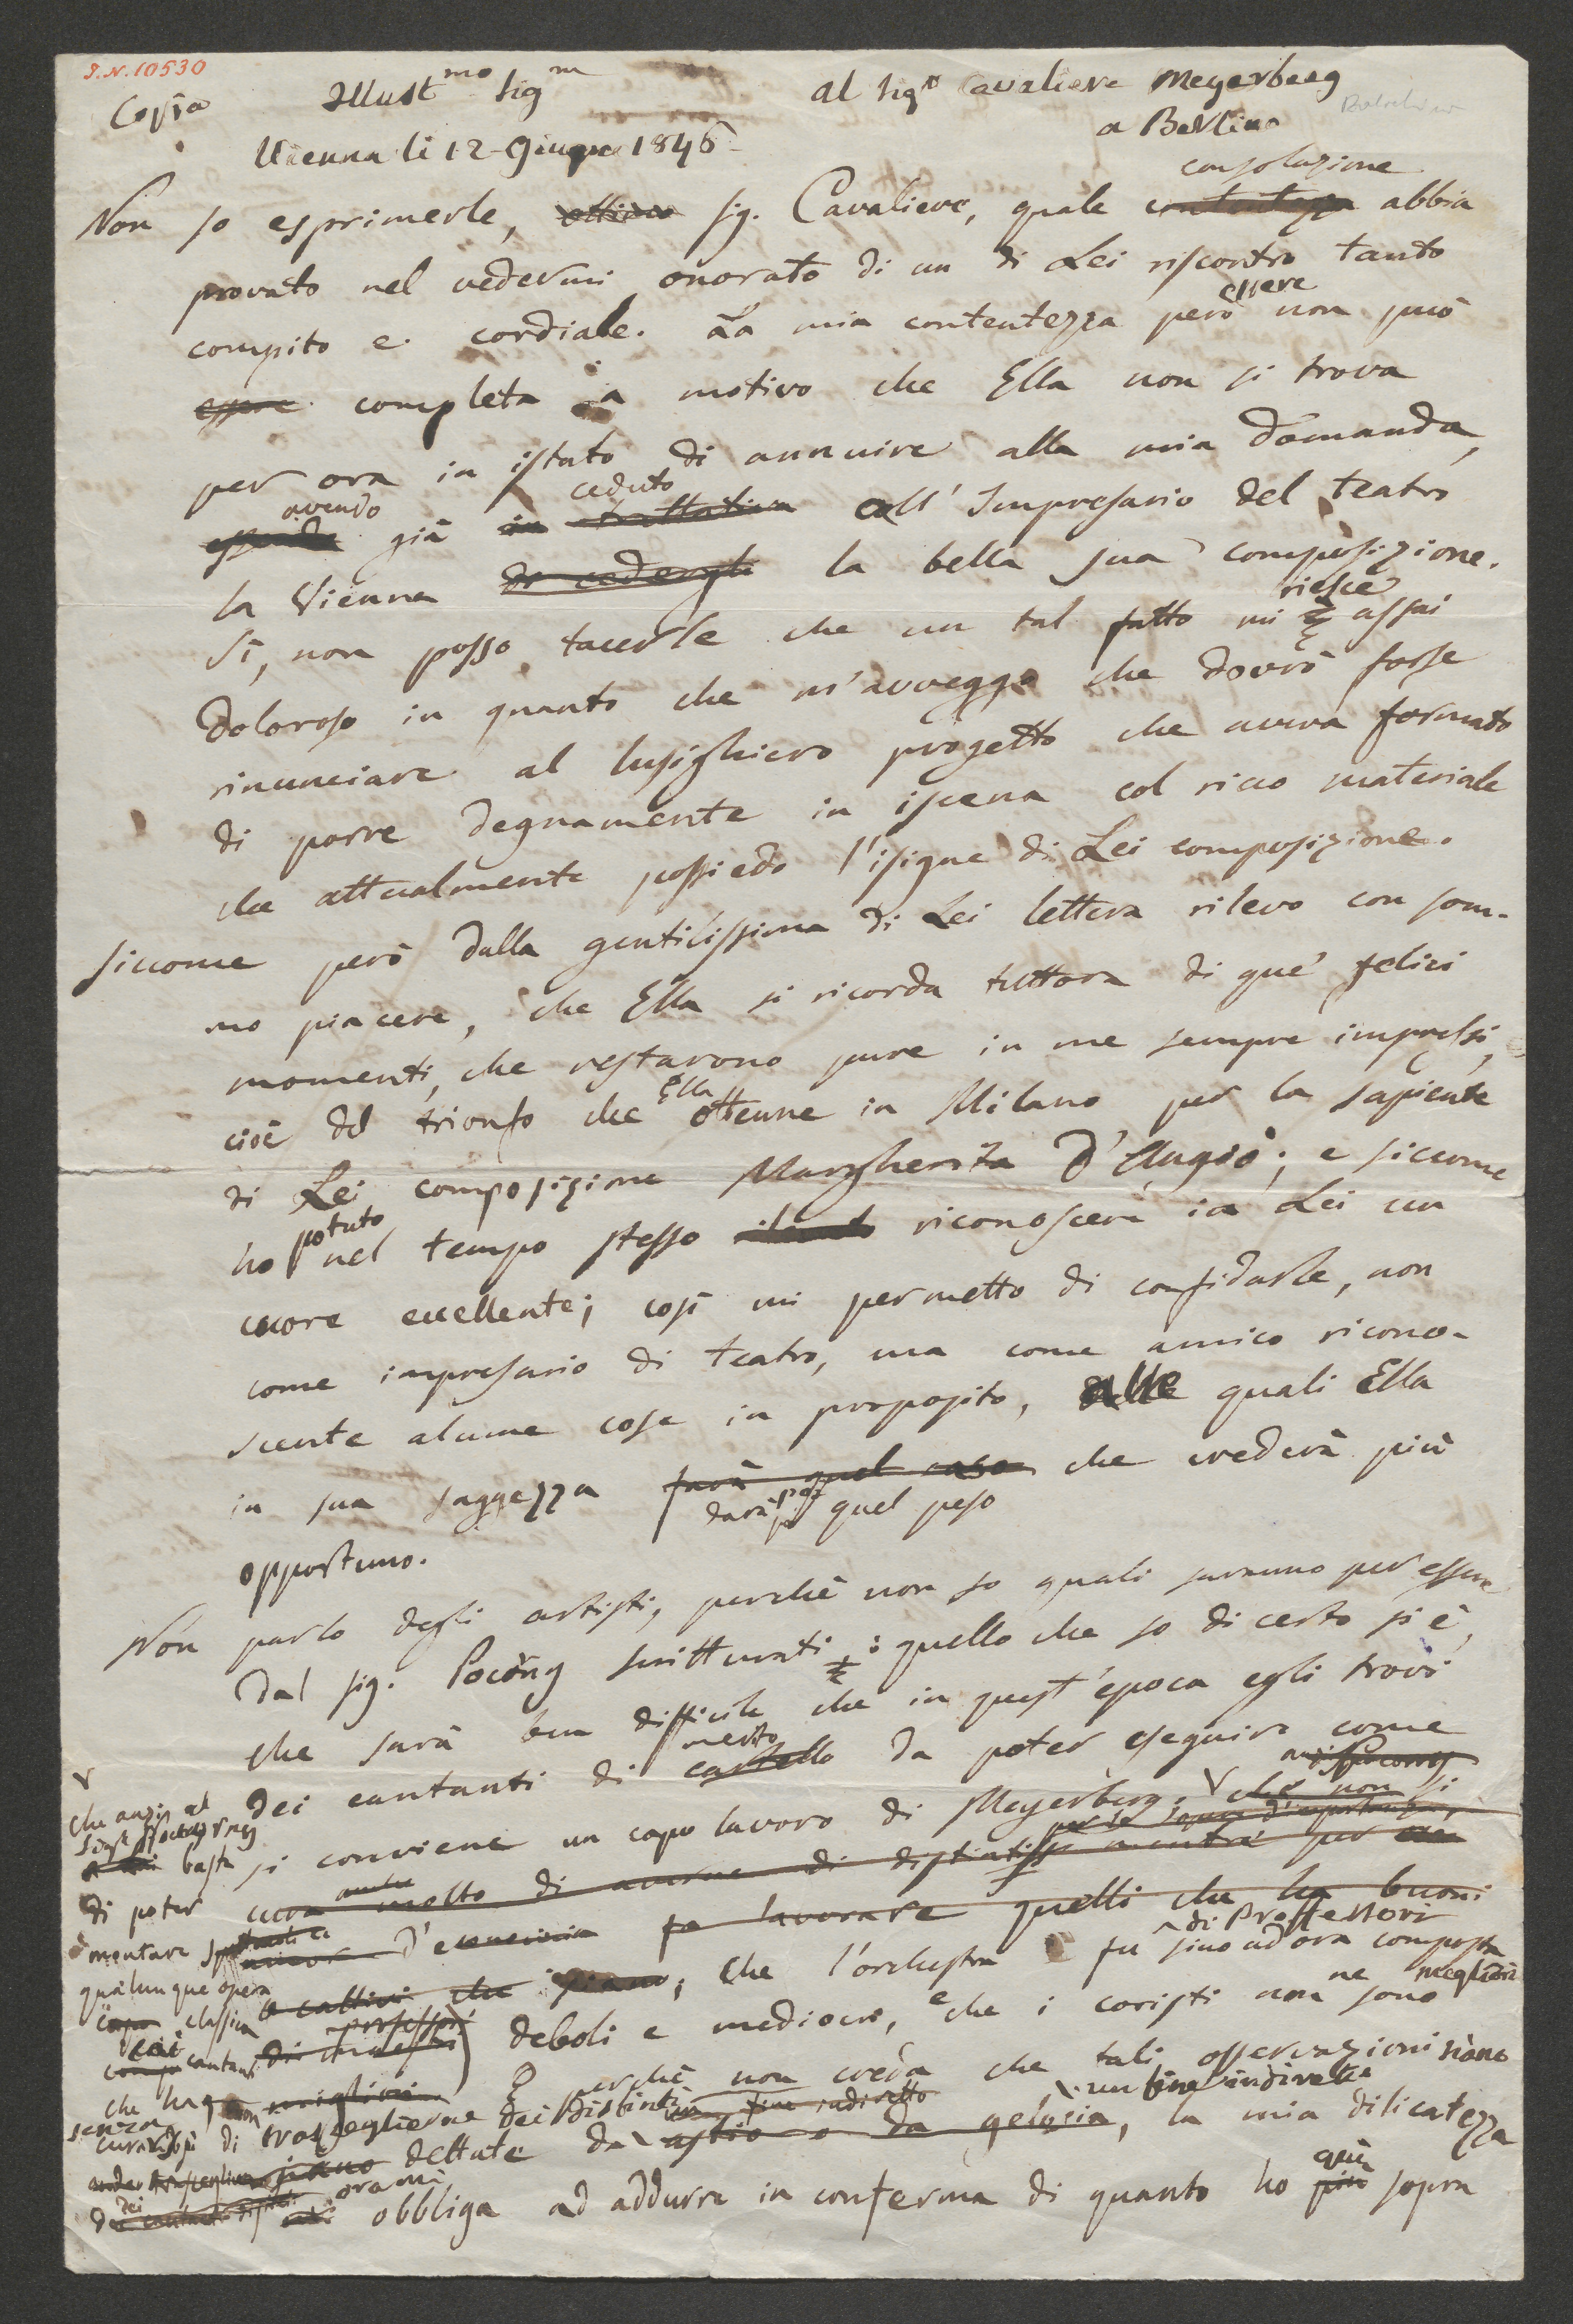 I.N. 10530
Copia
Illust.mo Sig.re
al Sig.r Cavaliere Meyerbeeg
a Berlino
Vienna li 12 Giugno 1846
consolazione
Non so esprimerle, sig. Cavaliere, quale contentezza abbia
provato nel vedermi onorato di un di Lei riscontro tanto
essere
compito e cordiale. La mia contentezza però non può
essere completa a motivo che Ella non si trova
per ora in istato di annuire alla mia domanda,
avendo ceduto
essendo già in trattativa all'Impresario del teatro
la Vienna di cedergli la bella sua composizione.
riesce
Sì, non posso tacerle che un tal fatto mi è assai
doloroso in quanto che m'avveggo che dovrò forse
rinunciare al lusighiero progetto che aveva formato
di porre degnamente in iscena col ricco materiale
che attualmente possiedo l'isigne di Lei composizione.
siccome però dalla gentilissima di Lei lettera rilevo con som-
mo piacere, che Ella si ricorda tuttora di que' felici
momenti, che restarono pure in me sempre impressi,
Ella
cioè del trionfo che ottenne in Milano per la sapiente
di Lei composizione Margherita d'Angiò; e siccome
potuto
ho nel tempo stesso riconoscere in Lei un
cuore eccellente; così mi permetto di confidarle, non
come impresario di teatro, ma come amico ricono-
scente alcune cose in proposito, alle quali Ella
in sua saggezza farà quel caso che crederà più
darà poi quel peso
opportuno.
Non parlo degli artisti, perchè non so quali saranno per essere
dal sig. Pocorny scritturati; quello che so di certo si è,
che sarà ben difficile che in quest'epoca egli trovi
merito
dei cantanti di cartello da poter eseguire come
si conviene un capo lavoro di Meyerberg. che non si
cura molto di averne di distinti mentre per
fa lavorare quelli che ha buoni
di Professori
o cattivi che siano; che l'orchestra fu sino ad ora composta
ne megliori
deboli e mediocri, e che i coristi non sono
E perchè non creda che tali osservazioni siano
un fine indiretto
un fine indiretto
dettate da astio o da gelosia, la mia dilicatezza
ora mi già
obbliga ad addurre in conferma di quanto ho più sopra
che anzi al
Sig.r Pocorny
basta
di poter
montare
qualunque opera
classica
coi cantanti
che ha
senza
curarsi di trasceglierne dei distinti